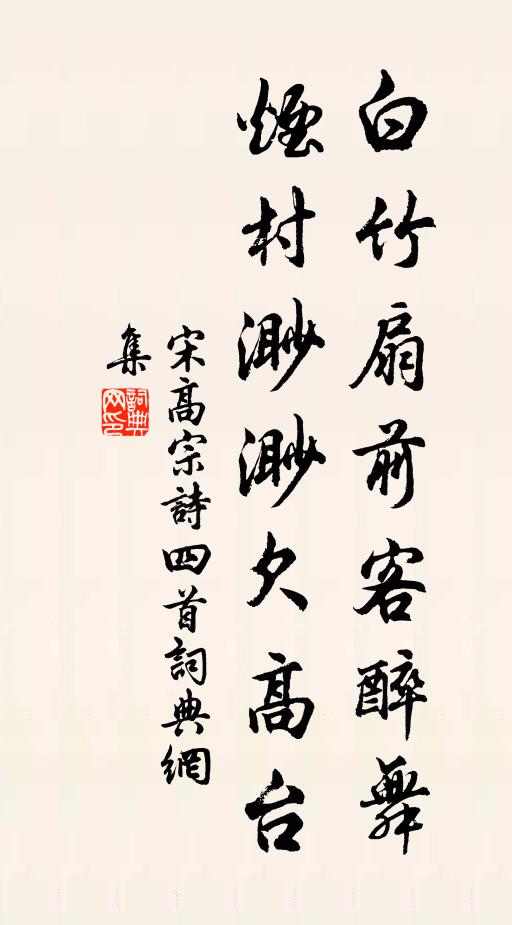 白竹扇前客醉舞
煙村渺渺欠高台
宋高宗詩四首詞典網
集
詞典網印